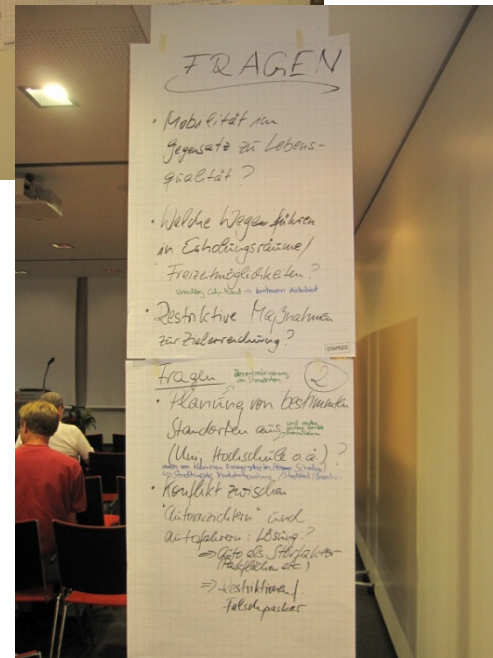 FRAGEN
• Mobilität im
Gegensatz zu Lebens-
qualität?
• Welche Wege führen
in Erholungsräume/
Freizeitmöglichkeiten?
• Restriktive Maßnahmen
zur Zielerreichung?
Fragen
2
• Planung von bestimmten
Standorten aus
(Uni, Hochschule o.ä.)?
• Konflikt zwischen
"Autoverzichtern" und
Autofahrern: Lösung?
⇒ Auto als Störfaktor
(Parkflächen etc)
⇒ Restriktionen f.
Falschparker